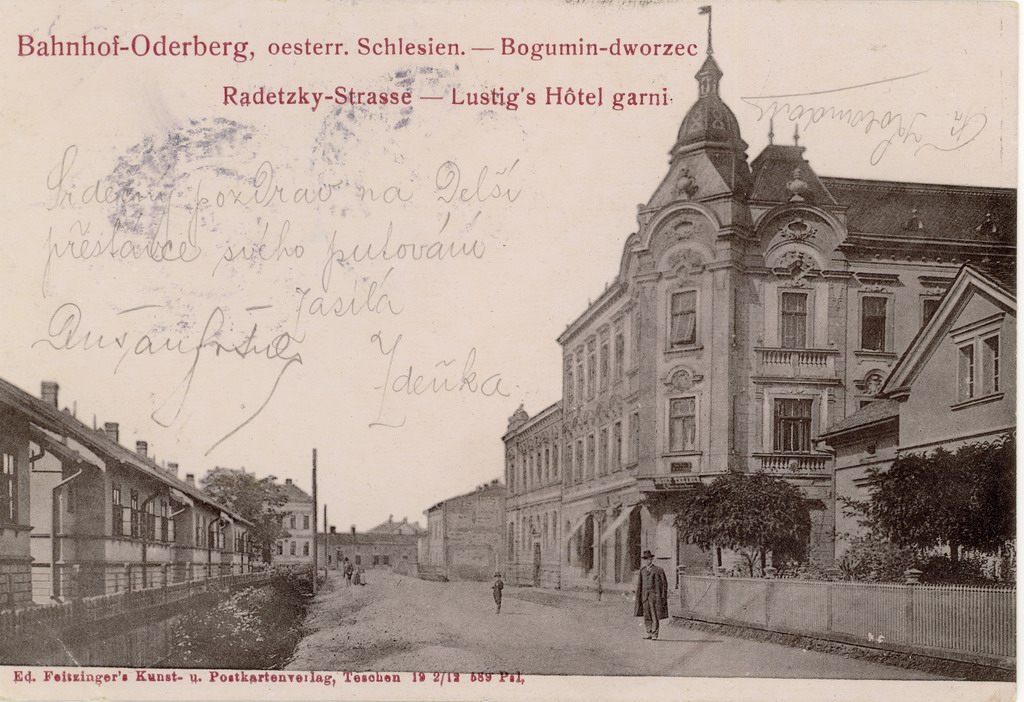 Bahnhof-Oderberg, oesterr. Schlesien. — Bogumin-dworzec
Radetzky-Strasse — Lustig's Hôtel garni.
Srdečný pozdrav na Delší
přestávce svého putování
zasílá
Dušan
Zdeňka
Ed. Feitzinger's Kunst- u. Postkartenverlag, Teschen 19 2/12 589 Psl,